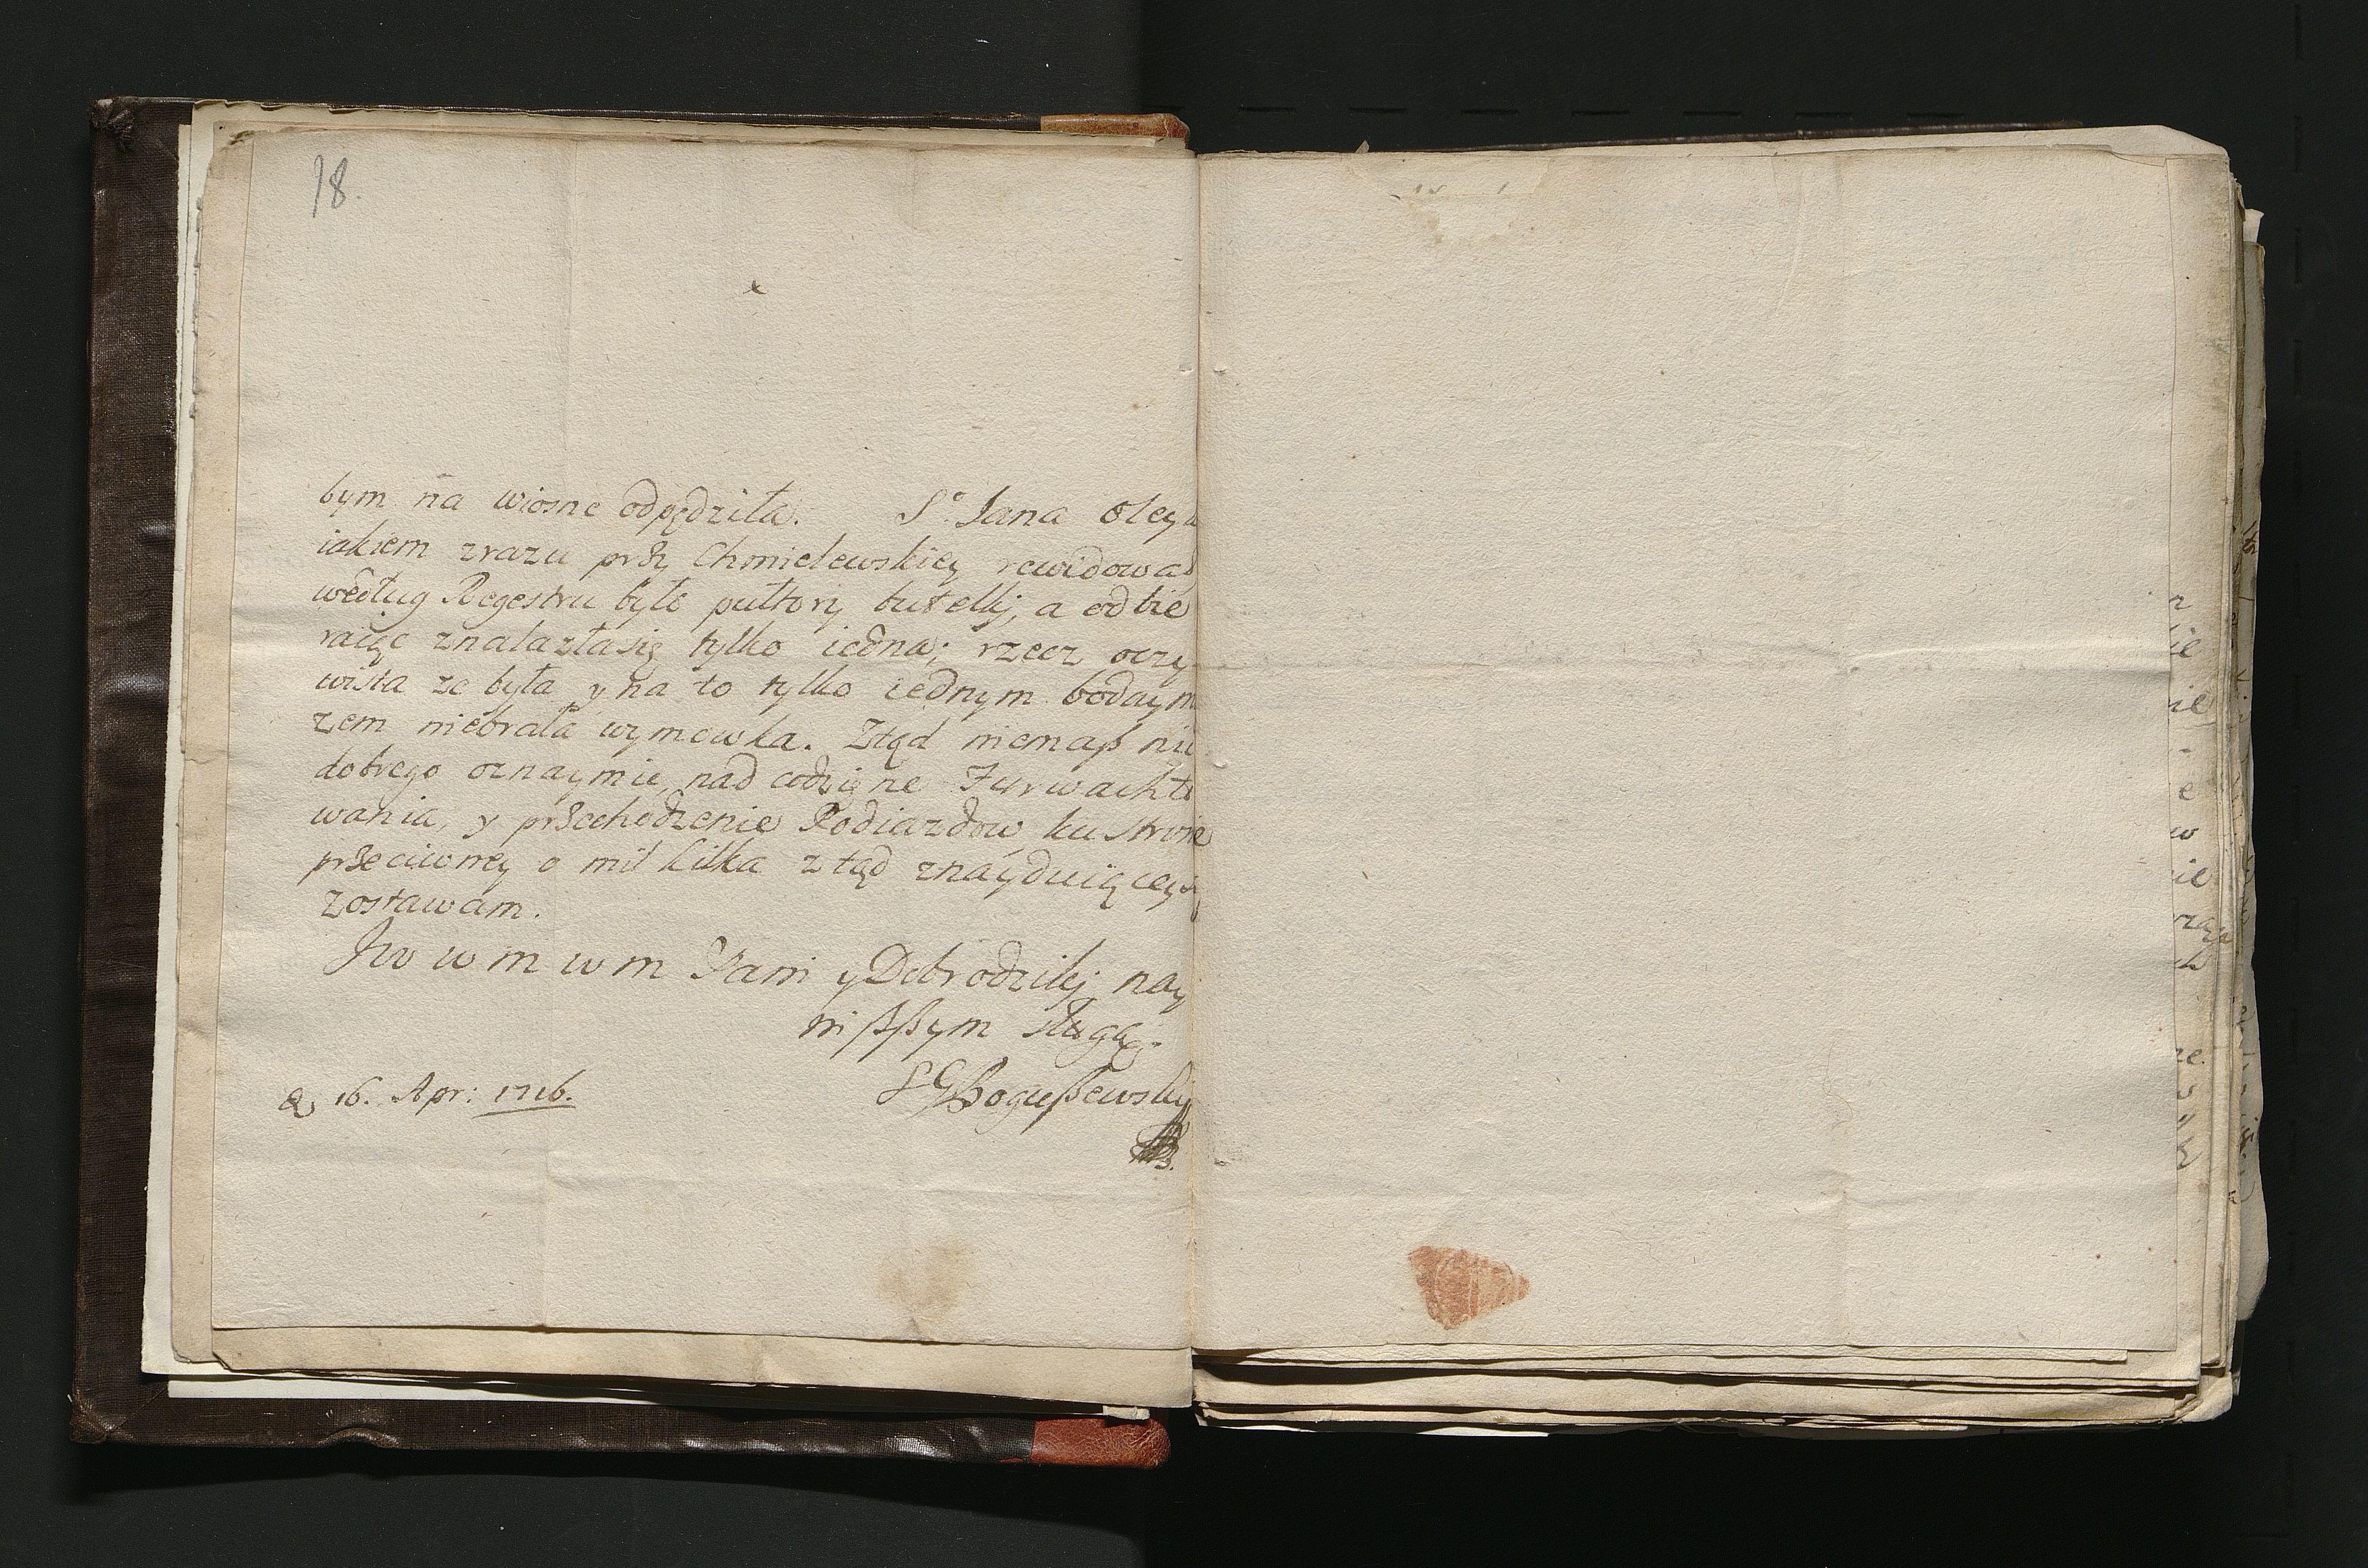 18.
bym na wiosne odpędziła. S.° Jana Oley
iakiem zrazu przy Chmielewskiey rewidował
według Regestru było pułtory butelki, a odbie
raiąc znalazłasię tylko iedna; rzecz oczy
wista ze była y na to tylko iednym bodaym
zem niebrała wymowka. Ztąd niemaß nic
dobrego oznaymie, nad codzięne
wania, y przechodzenie Podiazdow, ku stronie
przeciwney o mil kilka ztąd znayduiącey
zostawam.
Jw w m w m Pani y Dobrodziki nay
nißßym sługą
Bogußewsky
16. Apr: 1716.